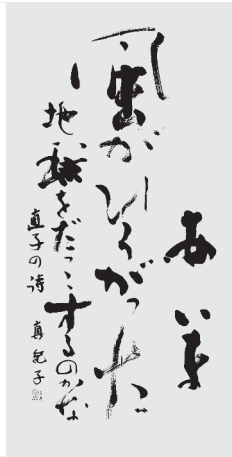 あいま
風がひろがった
地球をだっこするのかな
直子の詩 真紀子